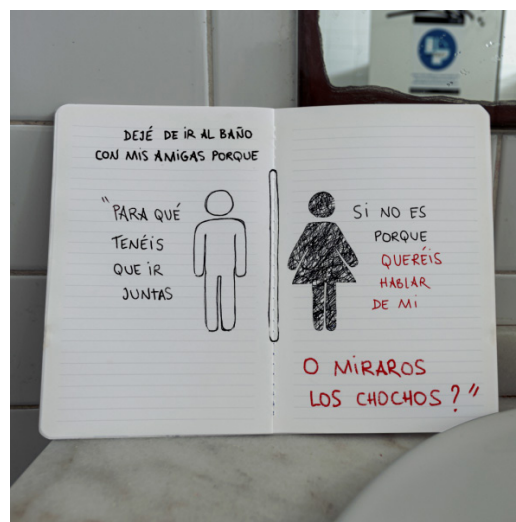 DEJÉ DE iR AL BAÑO
CON MIS AMIGAS PORQUE
"PARA QUÉ
TENÉIS
QUE iR
JUNTAS
Si NO ES
PORQUE
QUERÉIS
HABLAR
DE Mi
O MiRAROS
LOS CHOCHOS?"